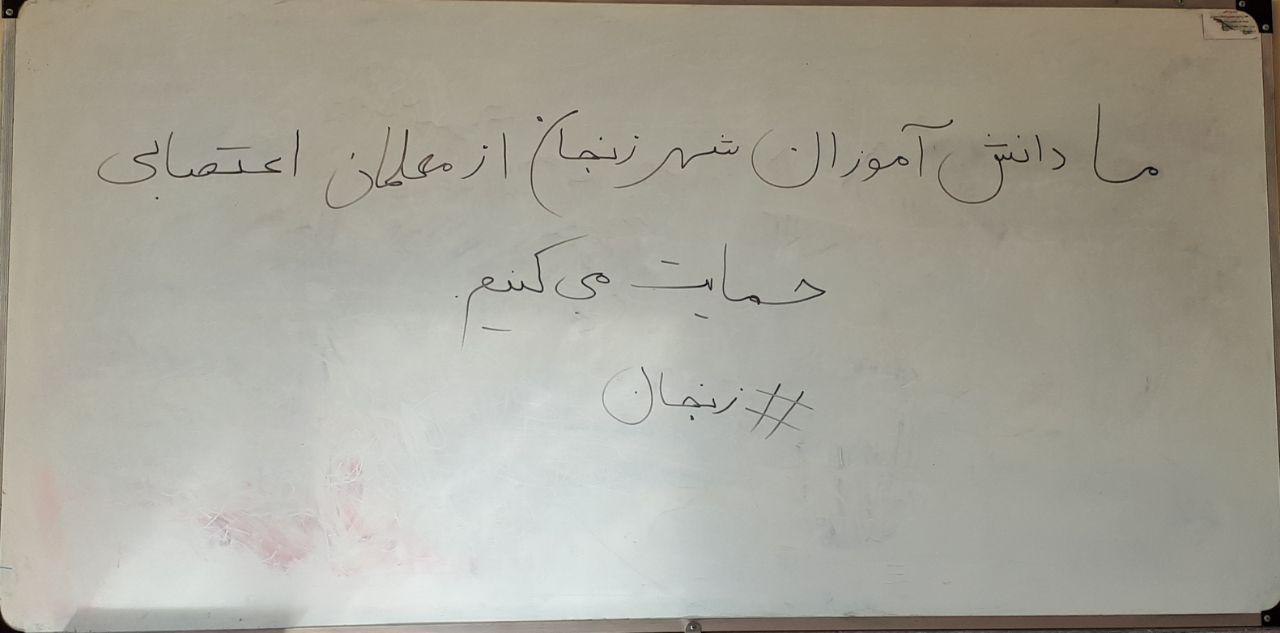 ما دانش آموزان شهر زنجان از معلمان اعتصابی
حمایت می کنیم.
#زنجان